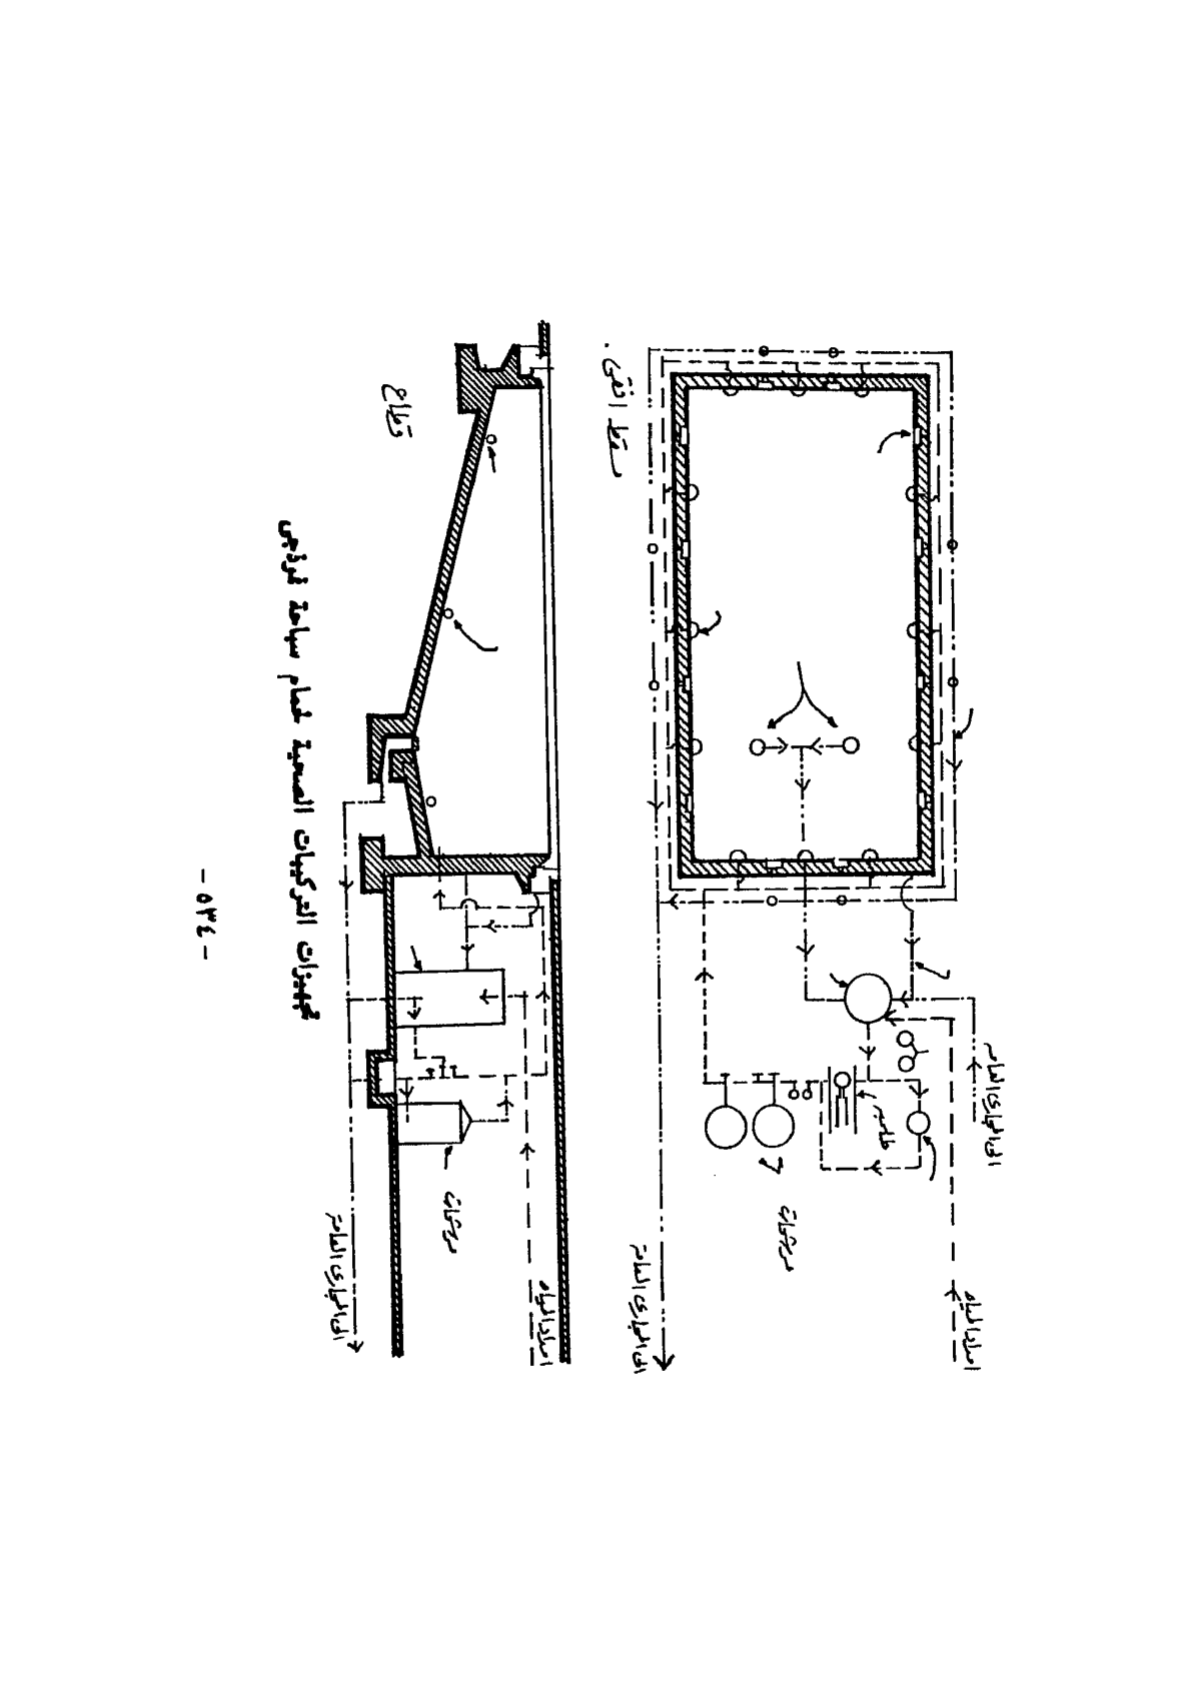 مسقط افقى .
الى المجارى العامه
امداد المياه
طلمبه
مرشحات
الى المجارى العامه
قطاع
امداد المياه
مرشحات
الى المجارى العامه
تجهيزات التركيبات الصحية لحمام سباحة نموذجى
- ٥٣٤ -